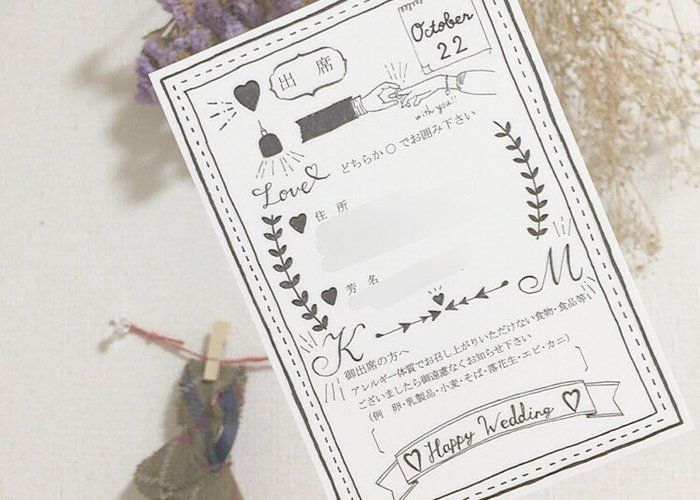 October
22
出 席
with you!!
どちらか○でお囲み下さい
Love
住 所
芳 名
M
K
御出席の方へ
アレルギー体質でお召し上がりいただけない食物・食品等
ございましたら御遠慮なくお知らせ下さい
(例 卵・乳製品・小麦・そば・落花生・エビ・カニ)
Happy Wedding